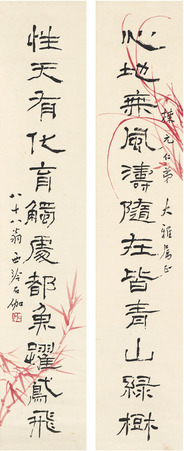 心地無風濤隨在皆青山綠樹
樸元仁弟 大雅属正
性天有化育觸處都魚躍鳶飛
八十八翁西泠石伽